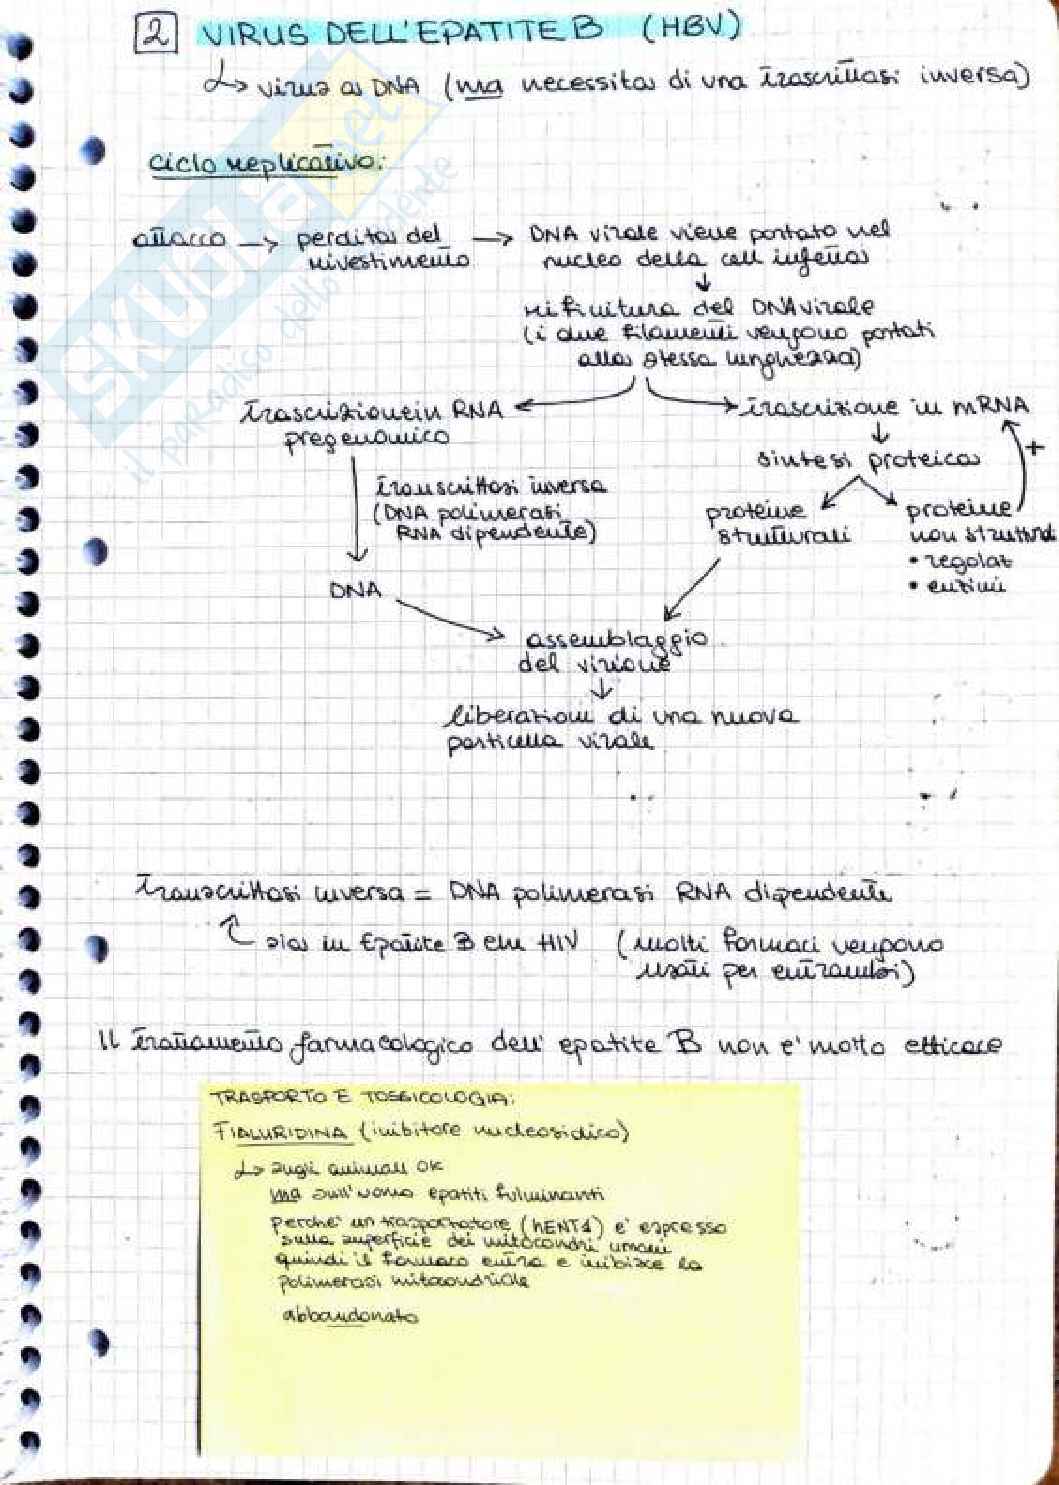 2 VIRUS DELL'EPATITE B (HBV)
↳ virus a DNA (ma necessita di una trascrittasi inversa)
ciclo replicativo:
attacco → perdita del rivestimento → DNA virale viene portato nel nucleo della cell infetta
↓
rifinitura del DNA virale
(i due filamenti vengono portati
alla stessa lunghezza)
trascrizione in RNA
pregenomico
trascrizione in mRNA
↓
+
sintesi proteica
transcrittasi inversa
(DNA polimerasi
RNA dipendente)
proteine
strutturali
proteine
non struttural
• regolat
• enzimi
DNA
assemblaggio
del virione
↓
liberazioni di una nuova
particella virale
Transcrittasi inversa = DNA polimerasi RNA dipendente
sia in Epatite B che HIV (molti farmaci vengono
usati per entrambi)
Il trattamento farmacologico dell' epatite B non e' molto efficace
TRASPORTO E TOSSICOLOGIA:
FIALURIDINA (inibitore nucleosidico)
↳ sugli animali OK
ma sull'uomo epatiti fulminanti
perche' un trasportatore (hENT1) e' espresso
sulla superficie dei mitocondri umani
quindi il farmaco entra e inibisce la
polimerasi mitocondriale
abbandonato
SKUOLA.net
il paradiso dello studente